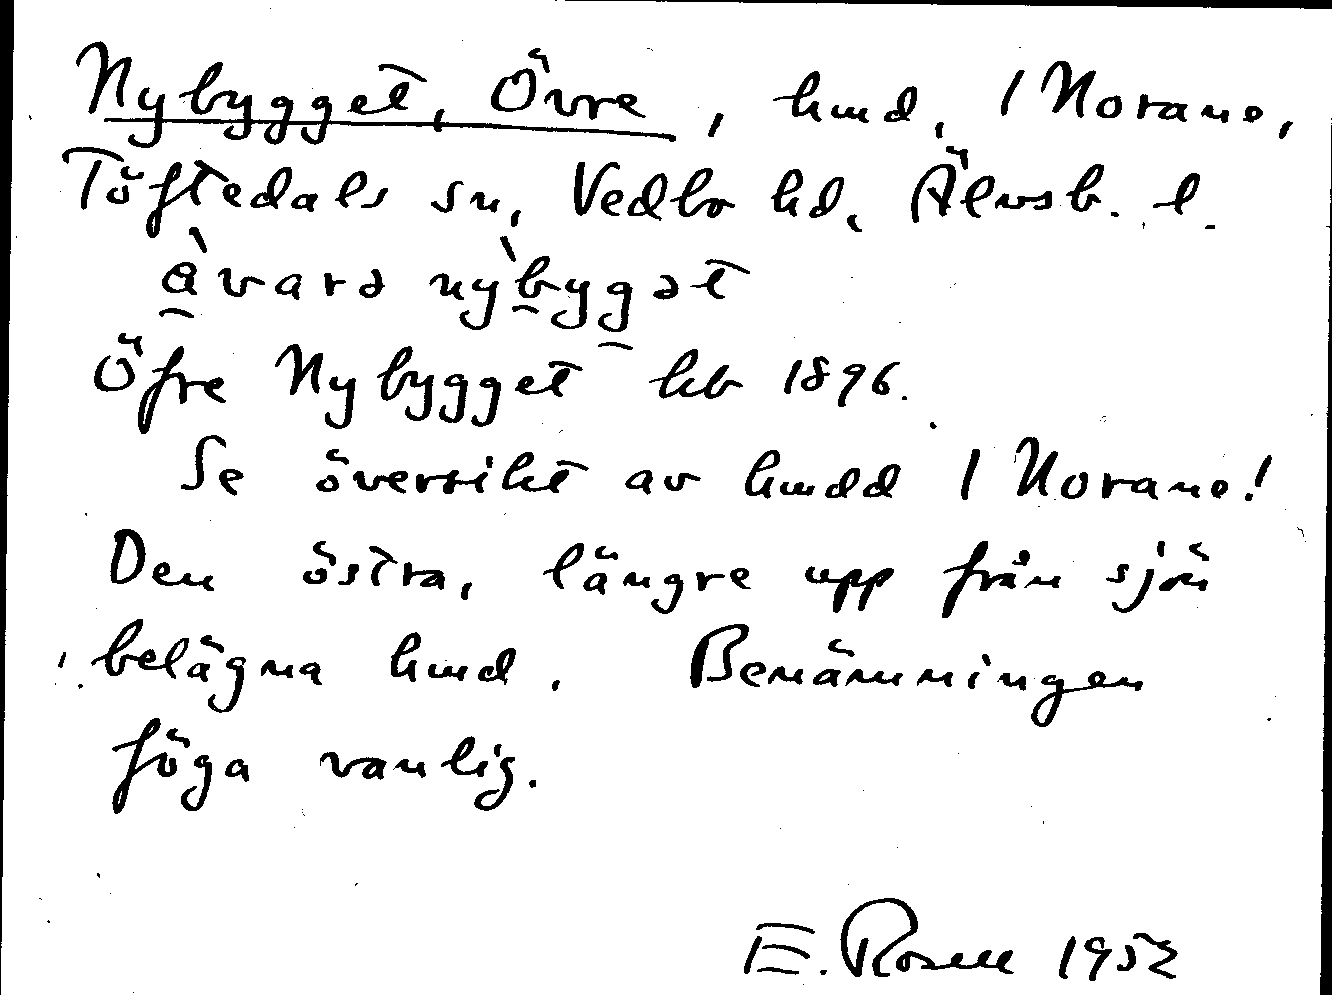 Nybygget, Övre, hmd, 1 Norane,
Töftedals sn, Vedbo hd, Älvsb. l.
ə̀varə nỳbygət
Öfre Nybygget kb 1896.
Se översikt av hmdd 1 Norane!
Den östra, längre upp från sjön
belägna hmd. Benämningen
föga vanlig.
E. Rosell 1952